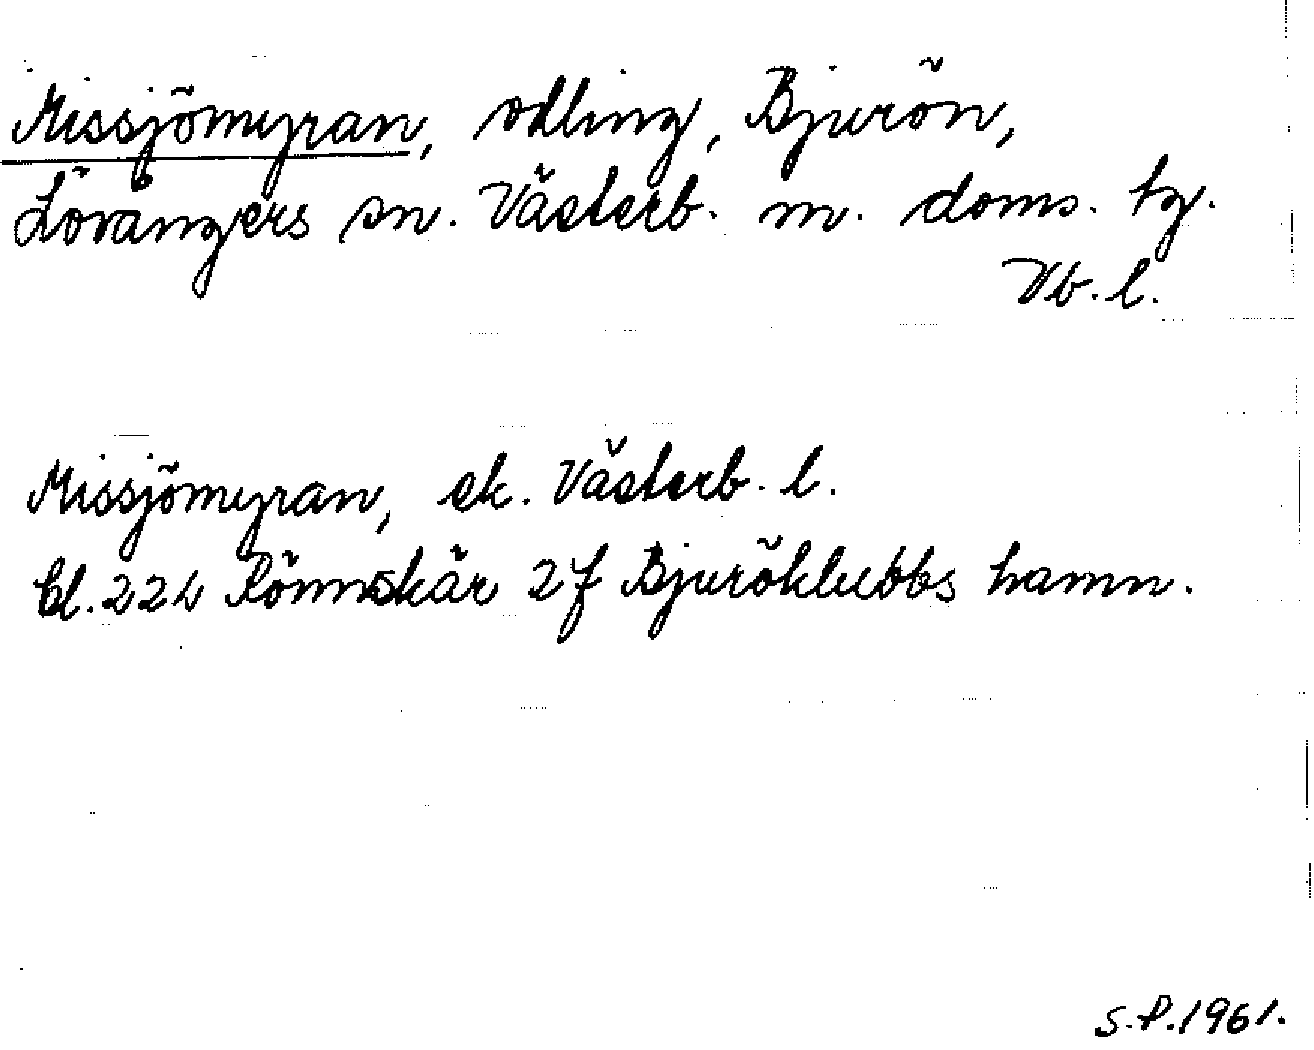 Missjömyran, odling, Bjurön,
Lövångers sn. Västerb. m. doms. tg.
Vb. l.
Missjömyran, ek. Västerb. l.
bl. 22L Rönnskär 2f Bjuröklubbs hamn.
S.P. 1961.